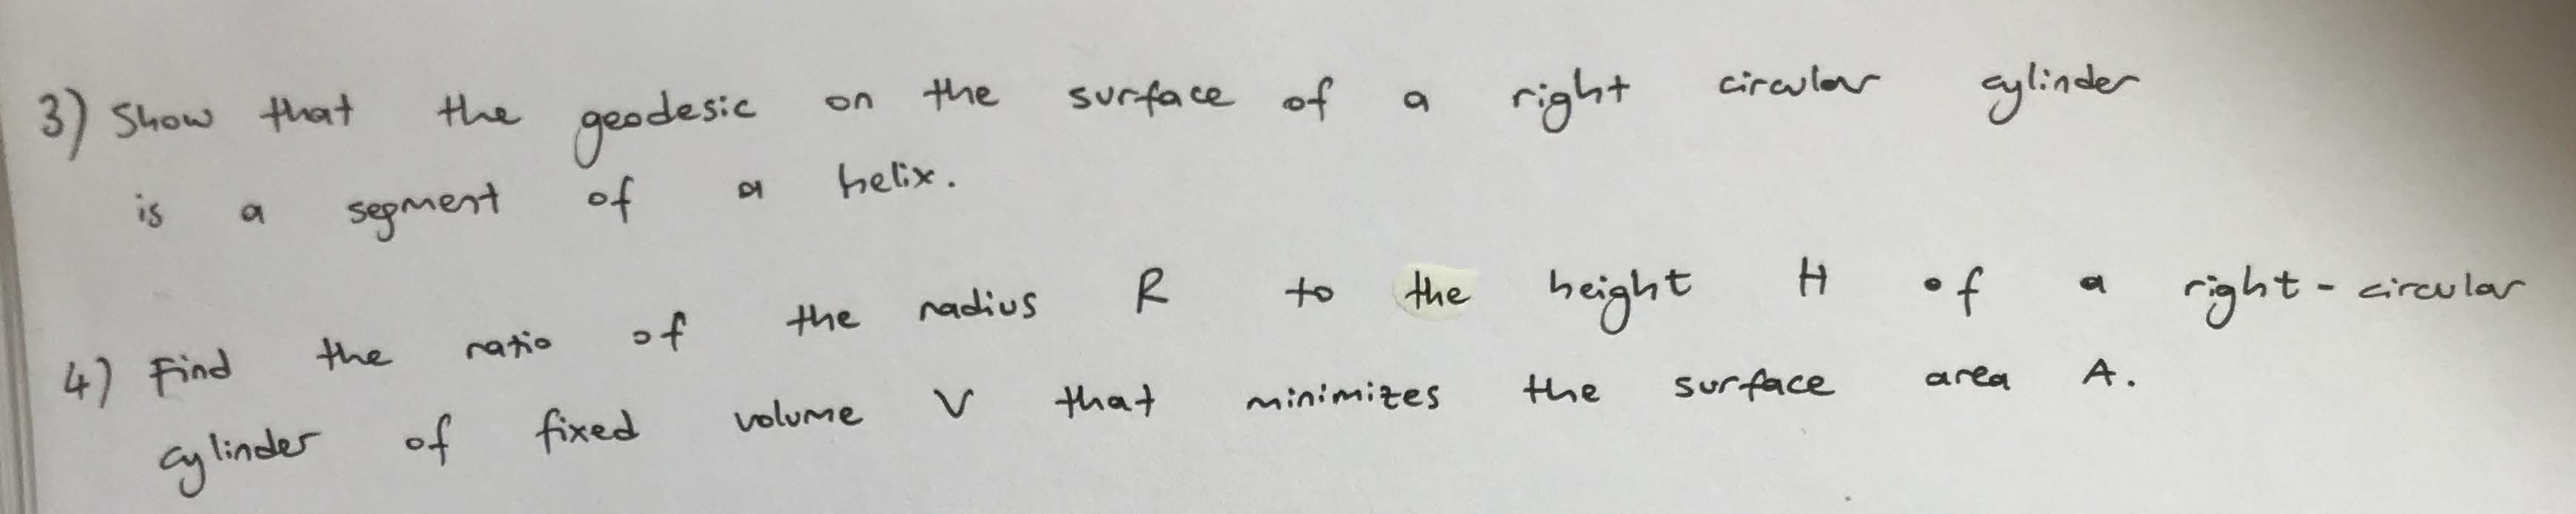 3) Show that the geodesic on the surface of a right circular cylinder
is a segment of a helix.
4) Find the ratio of the radius R to the height H of a right-circular
cylinder of fixed volume V that minimizes the surface area A.